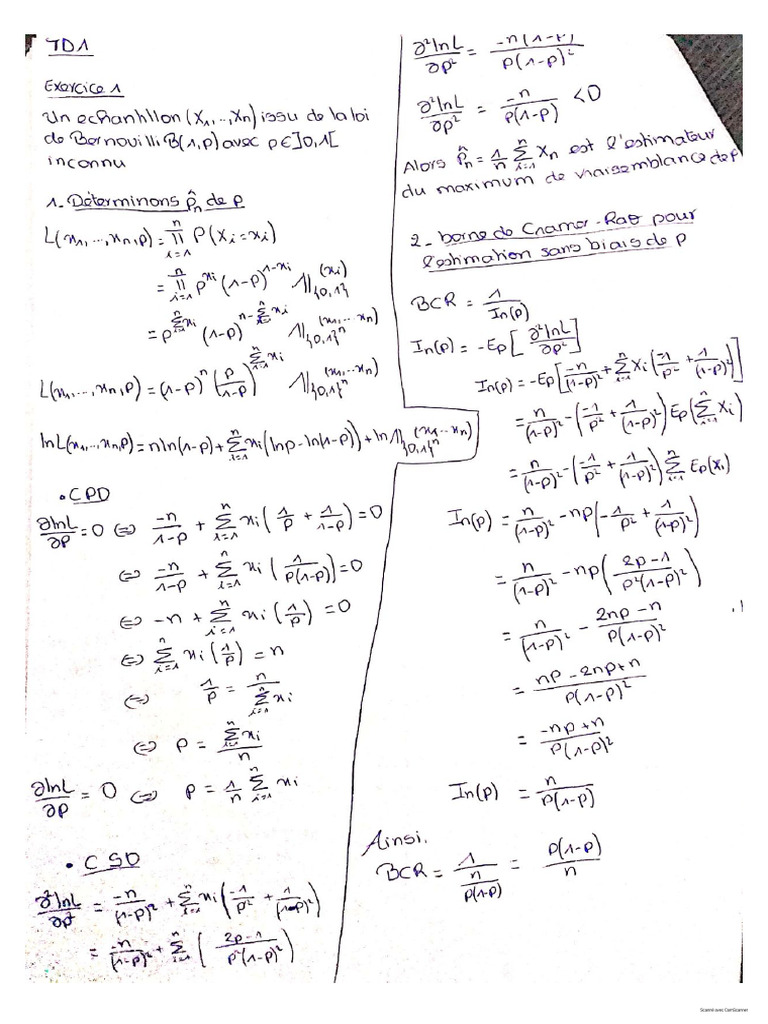 TD1
Exercice 1
Un echantillon (X₁,..,Xn) issu de la loi
de Bernouilli B(1,p) avec p∈]0,1[
inconnu
1- Déterminons p̂n de p
L(x₁,...,xn,p) = ∏_{i=1}^{n} P(Xi=xi)
= ∏_{i=1}^{n} p^{xi} (1-p)^{1-xi} 1l_{{0,1}}(xi)
= p^{∑_{i=1}^{n} xi} (1-p)^{n-∑_{i=1}^{n} xi} 1l_{{0,1}^n}(x₁,...,xn)
L(x₁,...,xn,p) = (1-p)^n (p/(1-p))^{∑_{i=1}^{n} xi} 1l_{{0,1}^n}(x₁,...,xn)
lnL(x₁,...,xn,p) = n ln(1-p) + ∑_{i=1}^{n} xi (lnp - ln(1-p)) + ln 1l_{{0,1}^n}(x₁...xn)
• CPD
∂lnL/∂p = 0 ⇔ -n/(1-p) + ∑_{i=1}^{n} xi (1/p + 1/(1-p)) = 0
⇔ -n/(1-p) + ∑_{i=1}^{n} xi (1/(p(1-p))) = 0
⇔ -n + ∑_{i=1}^{n} xi (1/p) = 0
⇔ ∑_{i=1}^{n} xi (1/p) = n
⇔ 1/p = n/∑_{i=1}^{n} xi
⇔ p = ∑_{i=1}^{n} xi / n
∂lnL/∂p = 0 ⇔ p = 1/n ∑_{i=1}^{n} xi
• CSD
∂²lnL/∂p² = -n/(1-p)² + ∑_{i=1}^{n} xi (-1/p² + 1/(1-p)²)
= -n/(1-p)² + ∑_{i=1}^{n} ( (2p-1)/(p²(1-p)²)
∂²lnL/∂p² = -n(1-p)/(p(1-p)²)
∂²lnL/∂p² = -n/(p(1-p)) <0
Alors p̂n = 1/n ∑_{i=1}^{n} Xn est l'estimateur
du maximum de vraisemblance de p
2- borne de Cramer-Rao pour
l'estimation sans biais de p
BCR = 1/In(p)
In(p) = -Ep[∂²lnL/∂p²]
In(p) = -Ep[-n/(1-p)² + ∑_{i=1}^{n} Xi (-1/p² + 1/(1-p)²)]
= n/(1-p)² - (-1/p² + 1/(1-p)²) Ep(∑_{i=1}^{n} Xi)
= n/(1-p)² - (-1/p² + 1/(1-p)²) ∑_{i=1}^{n} Ep(Xi)
In(p) = n/(1-p)² - np(-1/p² + 1/(1-p)²)
= n/(1-p)² - np((2p-1)/(p²(1-p)²))
= n/(1-p)² - (2np-n)/(p(1-p)²)
= (np-2np+n)/(p(1-p)²)
= (-np+n)/(p(1-p)²)
In(p) = n/(p(1-p))
Ainsi.
BCR = 1/(n/(p(1-p))) = p(1-p)/n
Scanné avec CamScanner